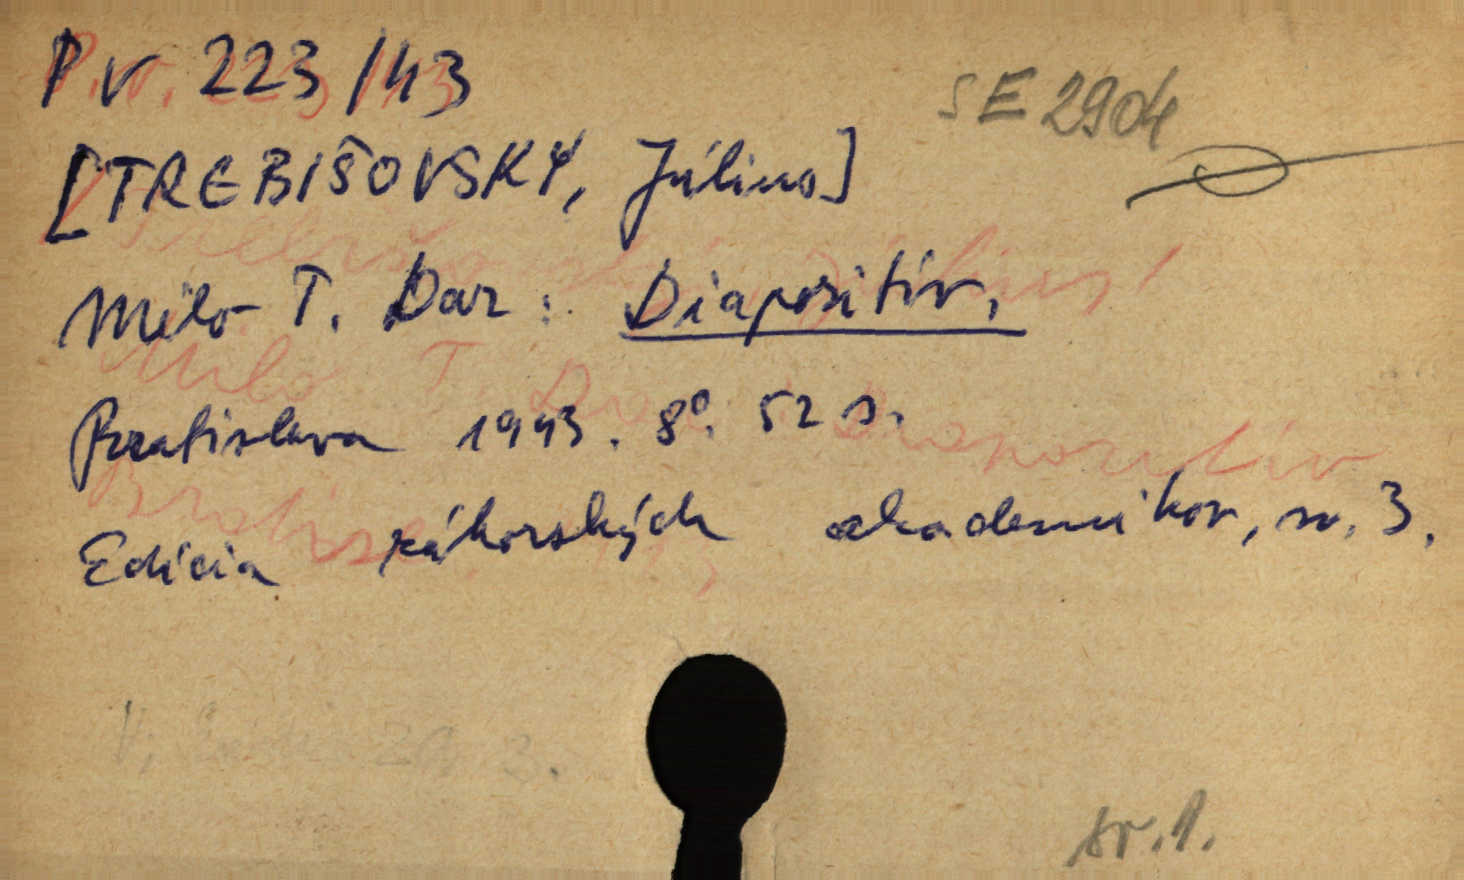 P.v. 223/43
SE 2904
[TREBIŠOVSKÝ, Július]
Milo T. Dar: Diapozitív.
Bratislava 1943. 8°. 52 s.
Edícia záhorských akademikov, sv. 3.
sv. 1.